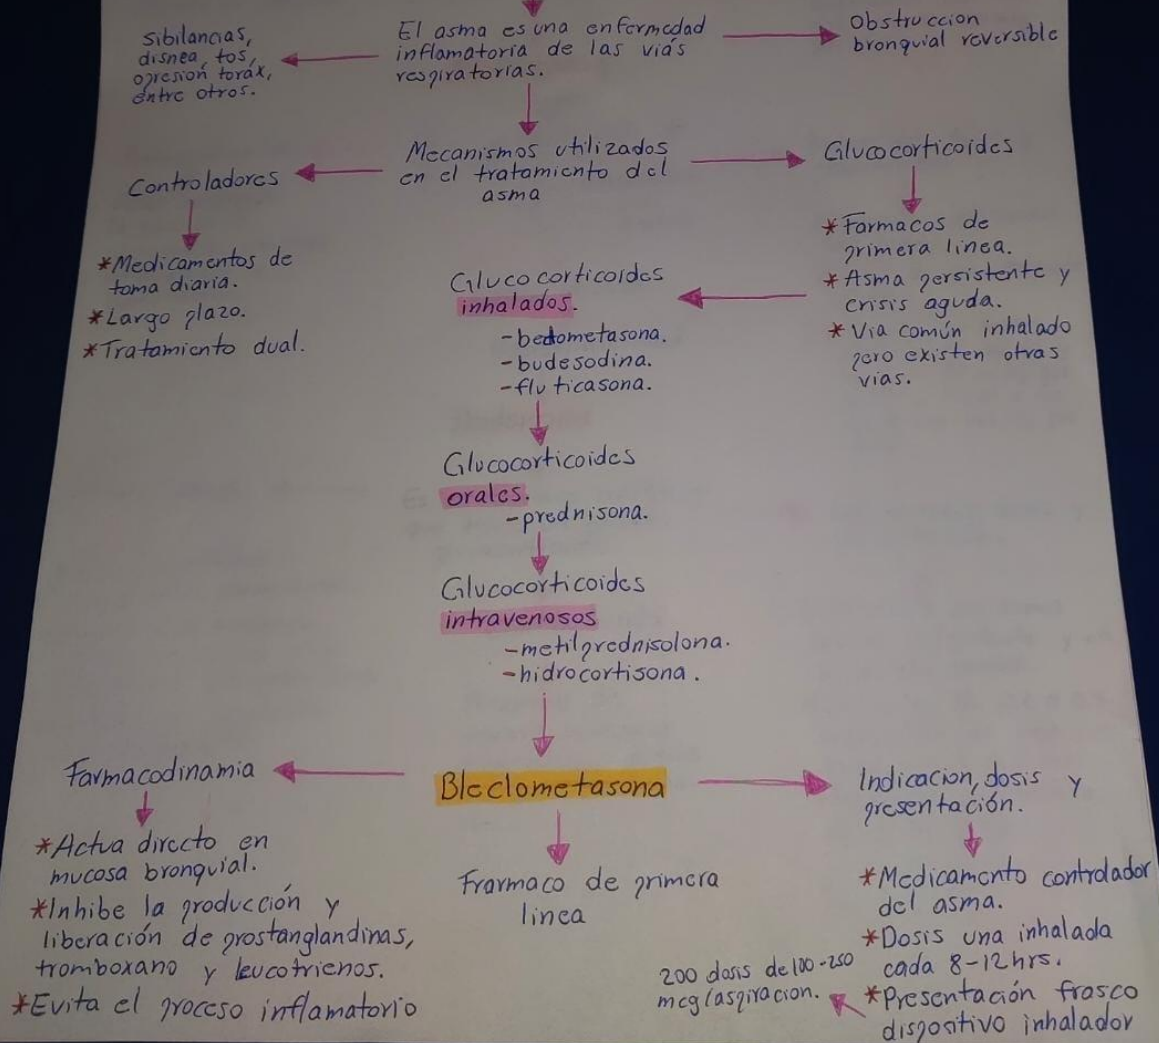 El asma es una enfermedad
inflamatoria de las viás
respiratorias.
Sibilancias,
disnea, tos,
opresion torax,
entre otros.
Obstruccion
bronquial reversible
Mecanismos utilizados
en el tratamiento del
asma
Controladores
*Medicamentos de
toma diaria.
*Largo plazo.
*Tratamiento dual.
Glucocorticoides
*Farmacos de
primera linea.
*Asma persistente y
crisis aguda.
*Via común inhalado
pero existen otras
vias.
Glucocorticoides
inhalados.
-beclometasona.
-budesodina.
-fluticasona.
Glucocorticoides
orales.
-prednisona.
Glucocorticoides
intravenosos
-metilprednisolona.
-hidrocortisona.
Bleclometasona
Farmacodinamia
*Actua directo en
mucosa bronquial.
*Inhibe la producción y
liberación de prostanglandinas,
tromboxano y leucotrienos.
*Evita el proceso inflamatorio
Frarmaco de primera
linea
Indicacion, dosis y
presentación.
*Medicamento controlador
del asma.
*Dosis una inhalada
cada 8-12hrs.
*Presentación frasco
dispositivo inhalador
200 dosis de 100-250
mcg/aspiracion.